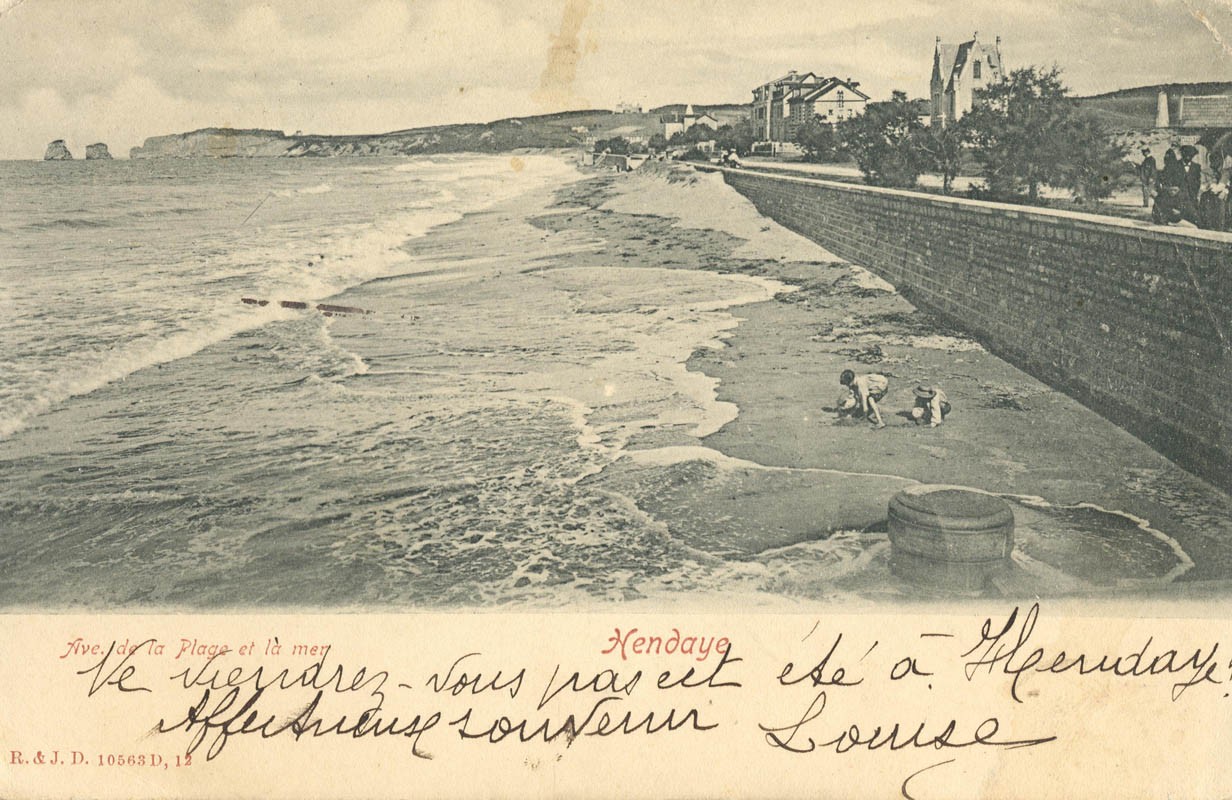 Ave. de la Plage et là mer
Hendaye
Ne viendrez-vous pas cet été à Hendaye!
Affectueux souvenir Louise
R. & J. D. 10563 D, 12